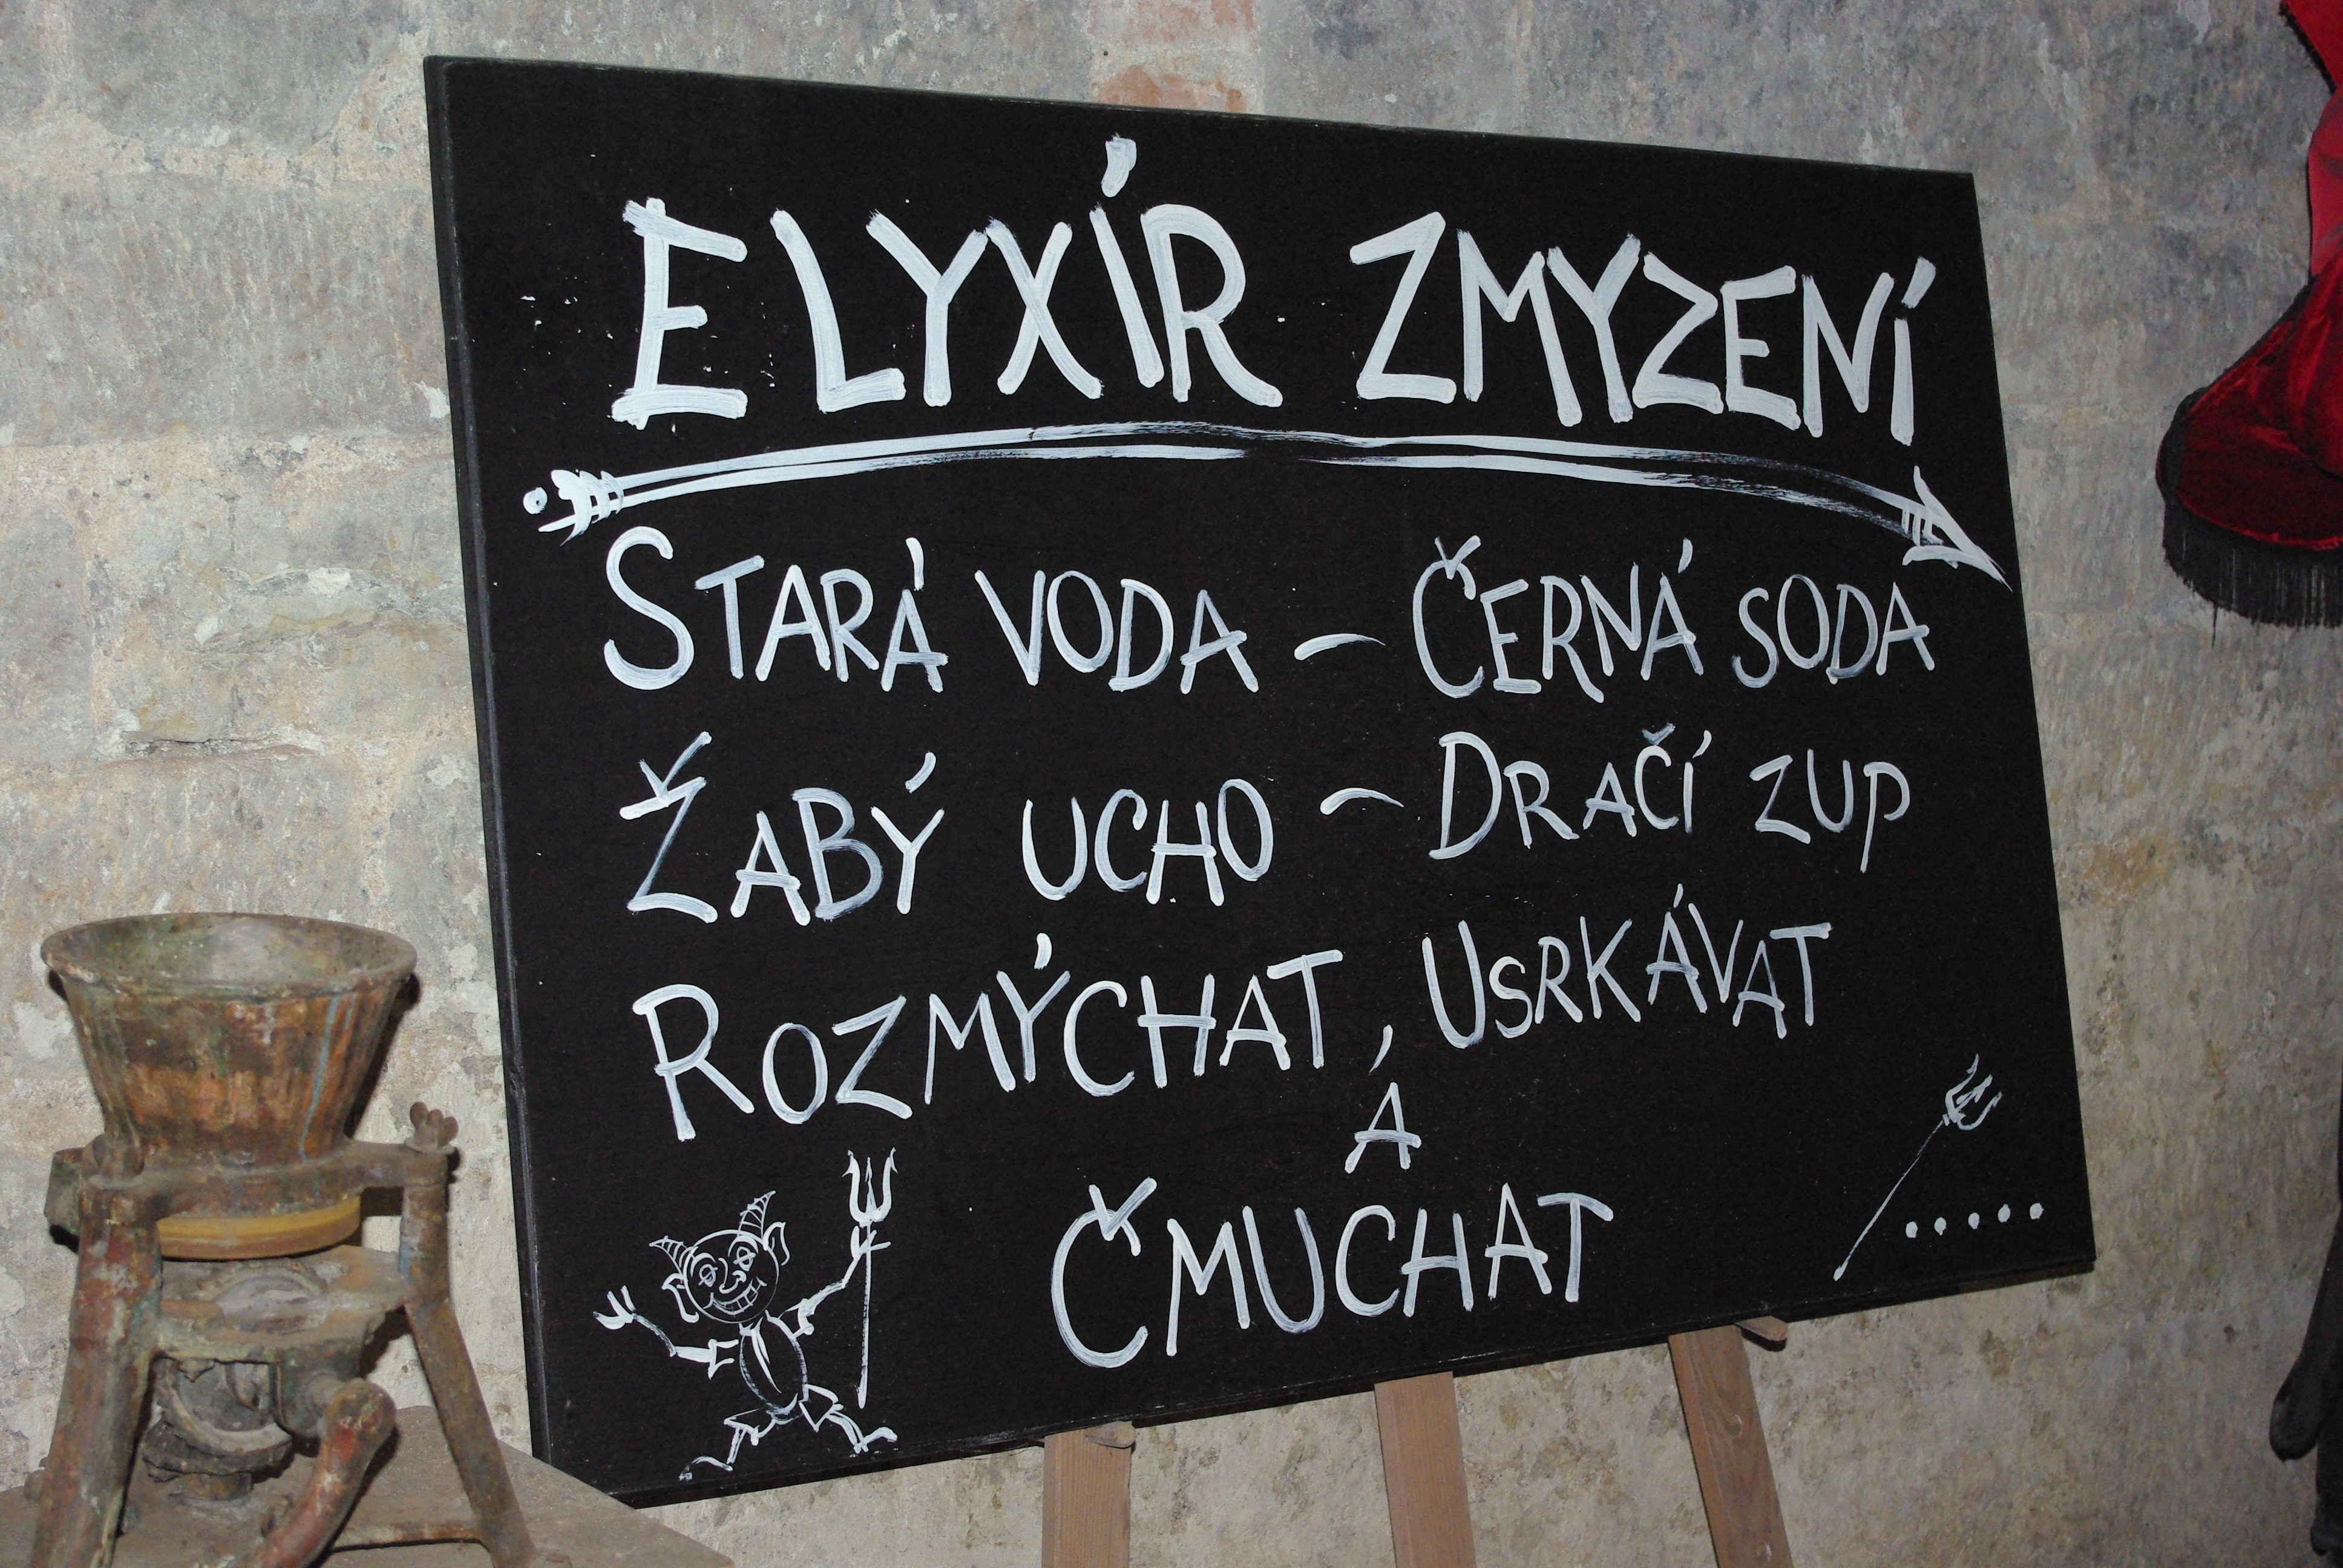 ELYXÍR ZMYZENÍ
STARÁ VODA - ČERNÁ SODA
ŽABÝ UCHO - DRAČÍ ZUP
ROZMÝCHAT, USRKÁVAT
Á
ČMUCHAT
.....